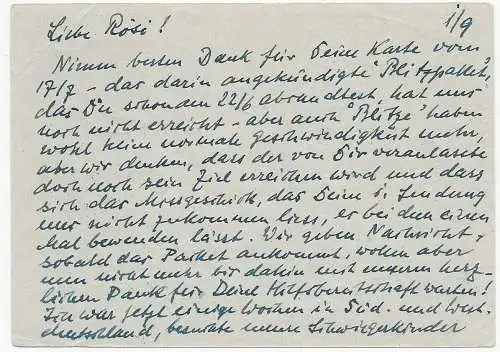 1/9
Liebe Rösi!
Nimm besten Dank für Deine Karte vom
17/7 - das darin angekündigte "Blitzpaket",
das Du schon den 22/6 absandtest, hat uns
noch nicht erreicht - aber auch "Blitze" haben
wohl keine normale Geschwindigkeit mehr,
aber wir denken, dass der von Dir veranlasste
doch noch sein Ziel erreichen wird und dass
sich das Missgeschick, das Deine 1. Sendung
uns nicht zukommen liess, es bei dem einen
Mal bewenden lässt. Wir geben Nachricht,
sobald das Paket ankommt, wollen aber
nun nicht mehr bis dahin mit unserm herz-
lichen Dank für Deine Hilfsbereitschaft warten!
Ich war jetzt einige Wochen in Süd- und West-
deutschland, besuchte meine Schwiegerkinder